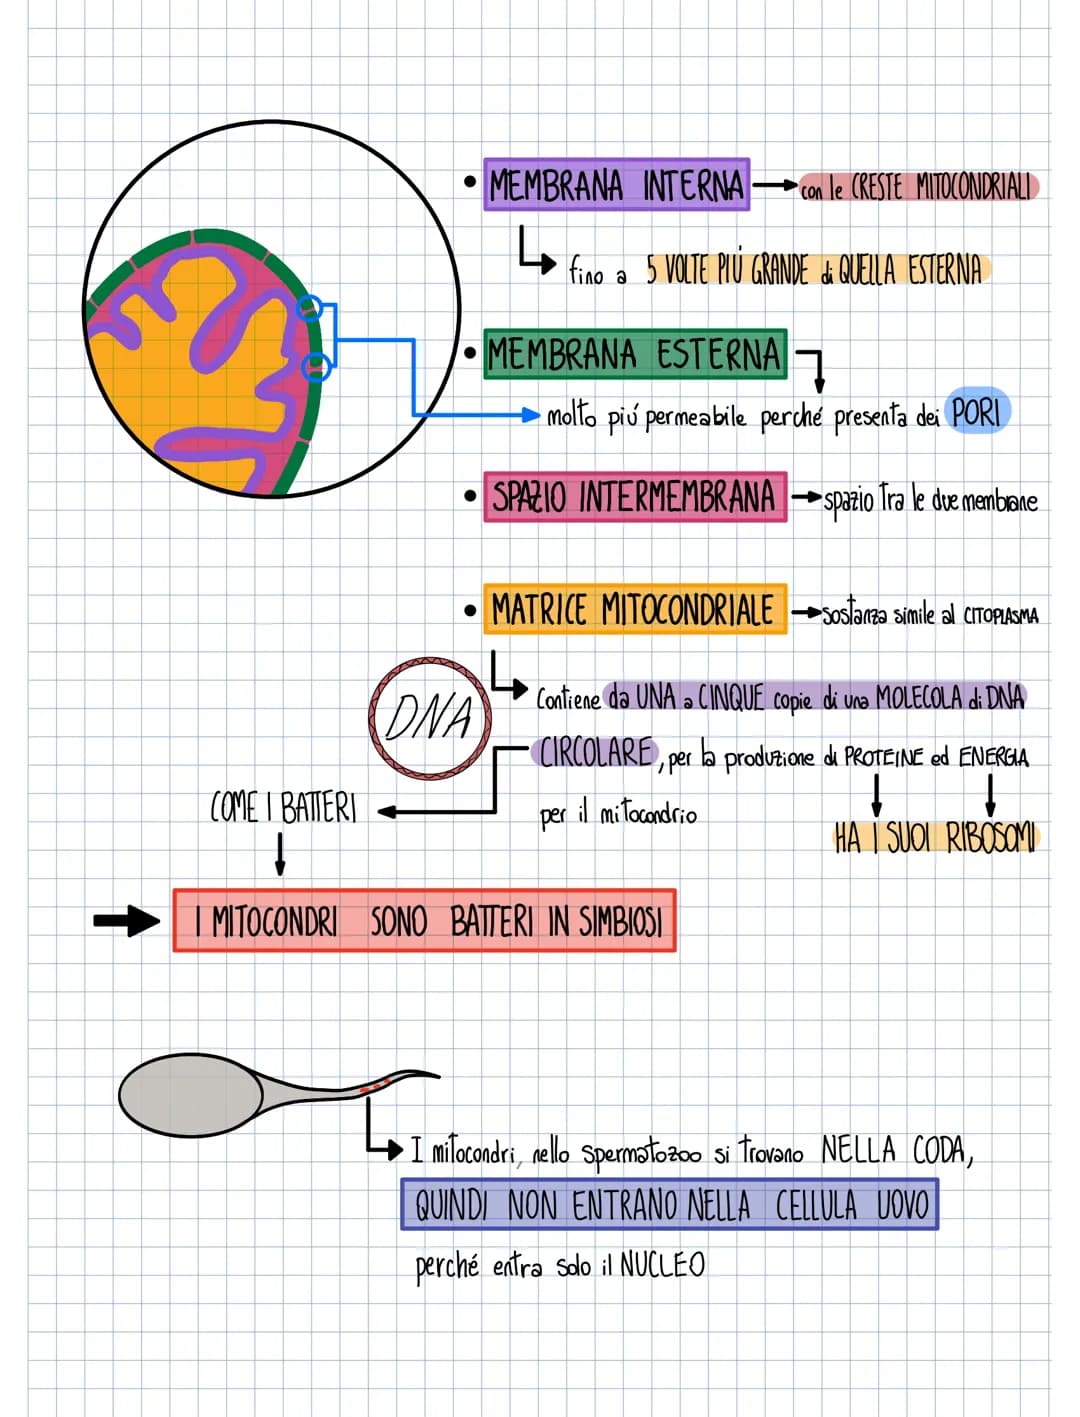 MEMBRANA INTERNA → con le CRESTE MITOCONDRIALI
fino a 5 VOLTE PIÙ GRANDE di QUELLA ESTERNA
MEMBRANA ESTERNA
molto piú permeabile perché presenta dei PORI
SPAZIO INTERMEMBRANA → spazio tra le due membrane
MATRICE MITOCONDRIALE → sostanza simile al CITOPLASMA
DNA
Contiene da UNA a CINQUE copie di una MOLECOLA di DNA
CIRCOLARE, per la produzione di PROTEINE ed ENERGIA
per il mitocondrio
HA I SUOI RIBOSOMI
COME I BATTERI
I MITOCONDRI SONO BATTERI IN SIMBIOSI
I mitocondri, nello spermatozoo si trovano NELLA CODA,
QUINDI NON ENTRANO NELLA CELLULA UOVO
perché entra solo il NUCLEO